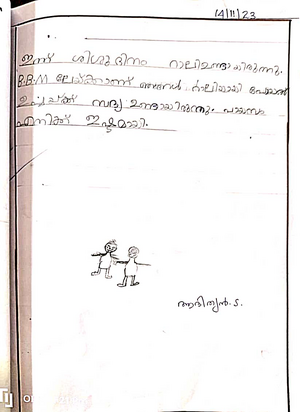 14/11/23
ഇന്ന് ശിശുദിനം റാലിഉണ്ടായിരുന്നു.
B.B.M ലേയ്ക്കാണ് ഞങ്ങൾ റാലിയായി പോയത്
ഉച്ചയ്ക്ക് സദ്യ ഉണ്ടായിരുന്നു. പായസം
എനിക്ക് ഇഷ്ടമായി.
ആദിത്യൻ.S.